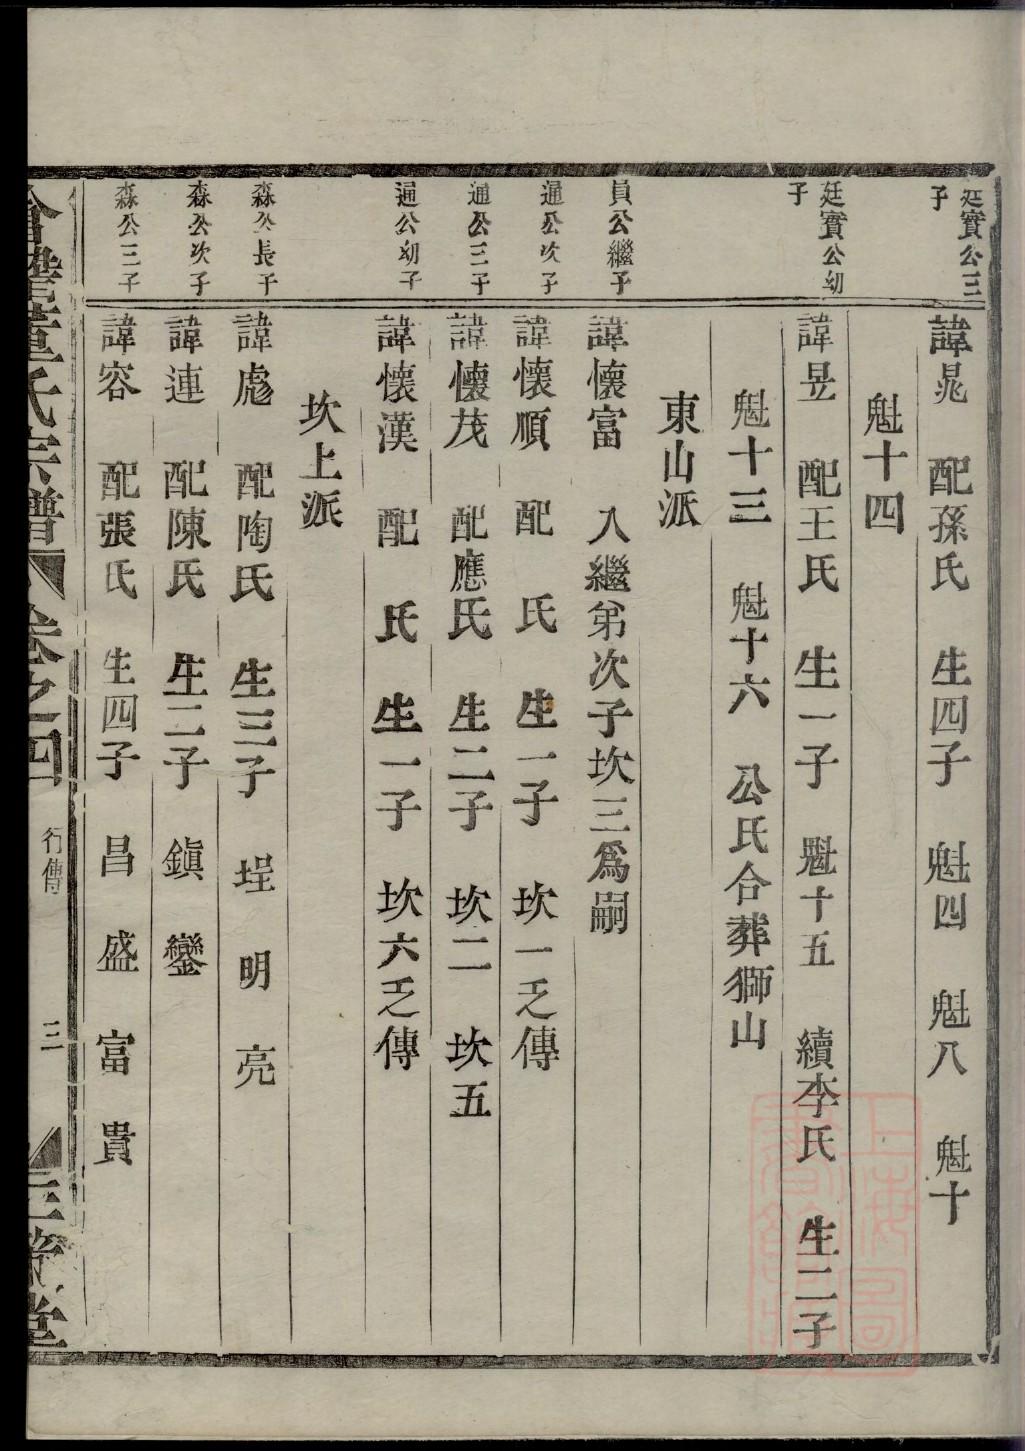 廷實公三
子
諱晁 配孫氏 生四子 魁四 魁八 魁十
魁十四
廷實公幼
子
諱昱 配王氏 生一子 魁十五 續李氏 生二子
魁十三 魁十六 公氏合葬獅山
東山派
員公繼子
諱懷富 入繼弟次子坎三爲嗣
通公次子
諱懷順 配 氏 生一子 坎一乏傳
通公三子
諱懷茂 配應氏 生二子 坎二 坎五
通公幼子
諱懷漢 配 氏 生一子 坎六乏傳
坎上派
森公長子
諱彪 配陶氏 生三子 埕 明 亮
森公次子
諱連 配陳氏 生二子 鎮 鑾
森公三子
諱容 配張氏 生四子 昌 盛 富 貴
董氏宗譜 卷之四 行傳 三 三策堂
上海圖書館藏